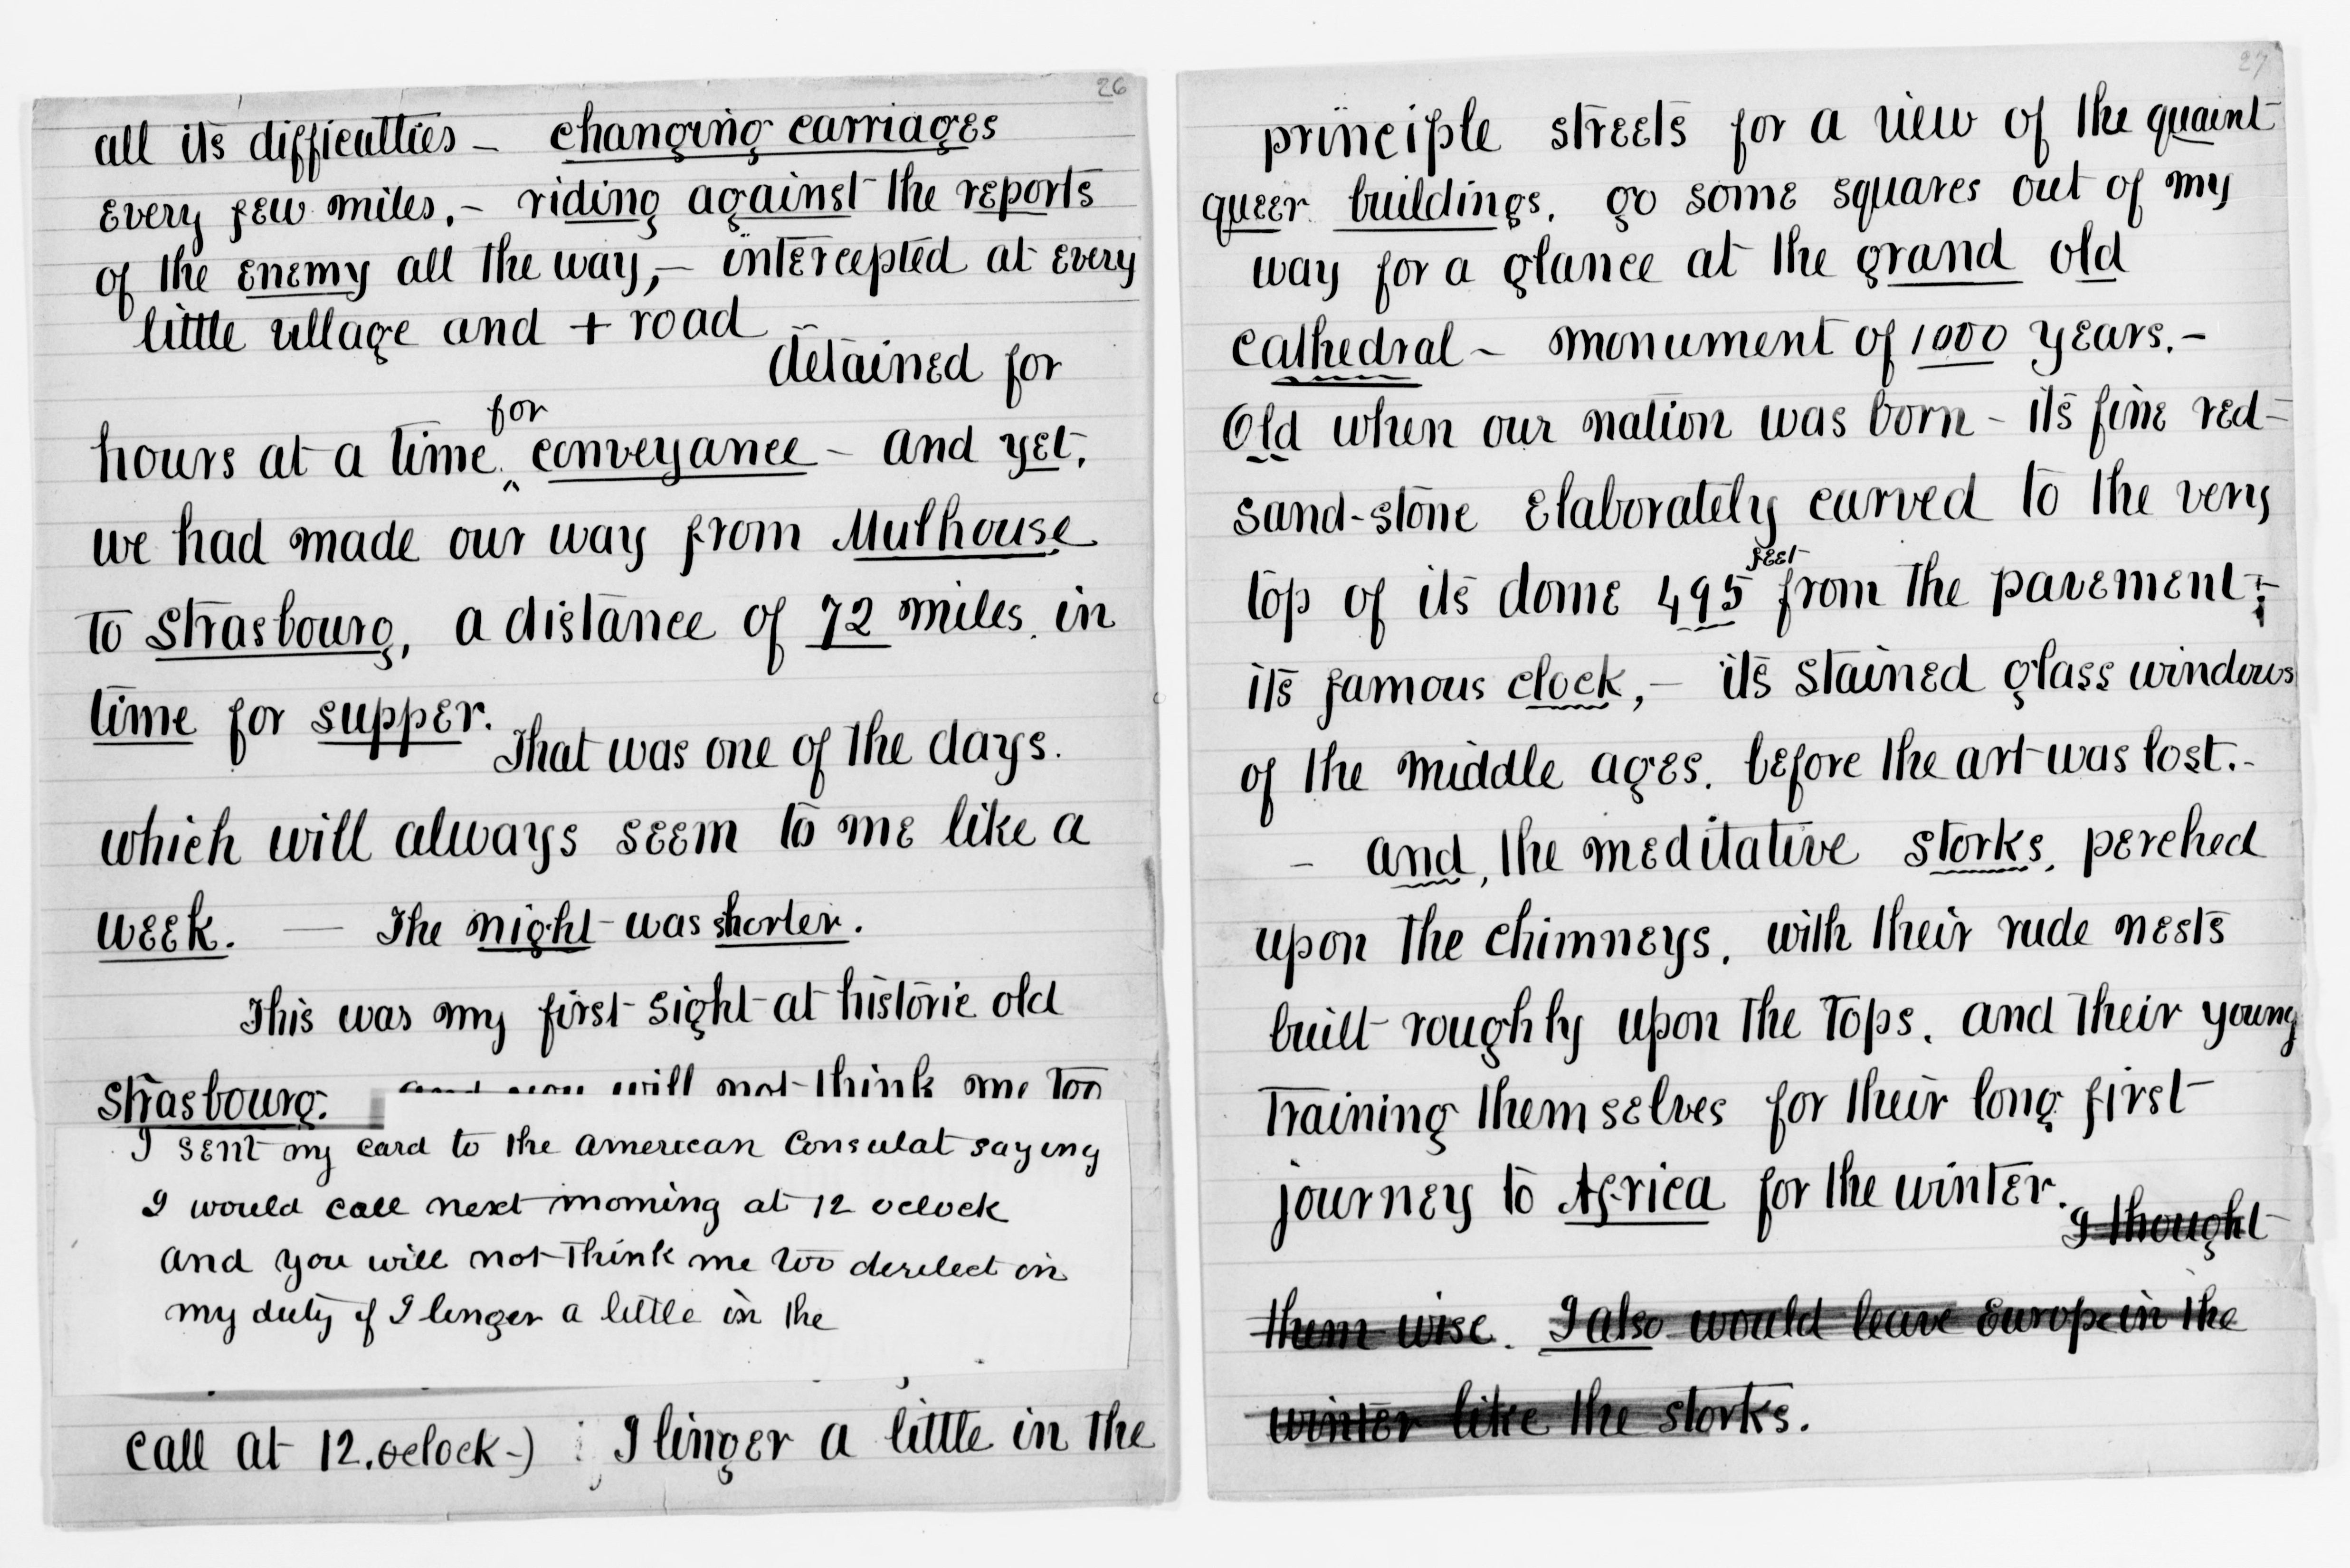 26
all its difficulties - changing carriages
every few miles, - riding against the reports
of the enemy all the way, - intercepted at every
little village and + road
detained for
for
hours at a time ^ conveyance - and yet,
we had made our way from Mulhouse
to Strasbourg, a distance of 72 miles. in
time for supper.
That was one of the days.
which will always seem to me like a
week. — The night was shorter.
This was my first sight at historic old
Strasbourg. and you will not think me too
I sent my card to the American Consulat saying
I would call next morning at 12 oclock
and you will not think me too derelect in
my duty if I linger a little in the
call at 12. oclock -) I linger a little in the
27
principle streets for a view of the quaint
queer buildings. go some squares out of my
way for a glance at the grand old
Cathedral - monument of 1000 years. -
Old when our nation was born - its fine red-
sand-stone elaborately carved to the very
feet
top of its dome 495 from the pavement;-
its famous clock, - its stained glass windows
of the middle ages. before the art was lost. -
- and, the meditative storks, perched
upon the chimneys, with their rude nests
built roughly upon the tops, and their young
training themselves for their long first
journey to Africa for the winter.
I thought
them wise. I also would leave Europe in the
winter like the storks.